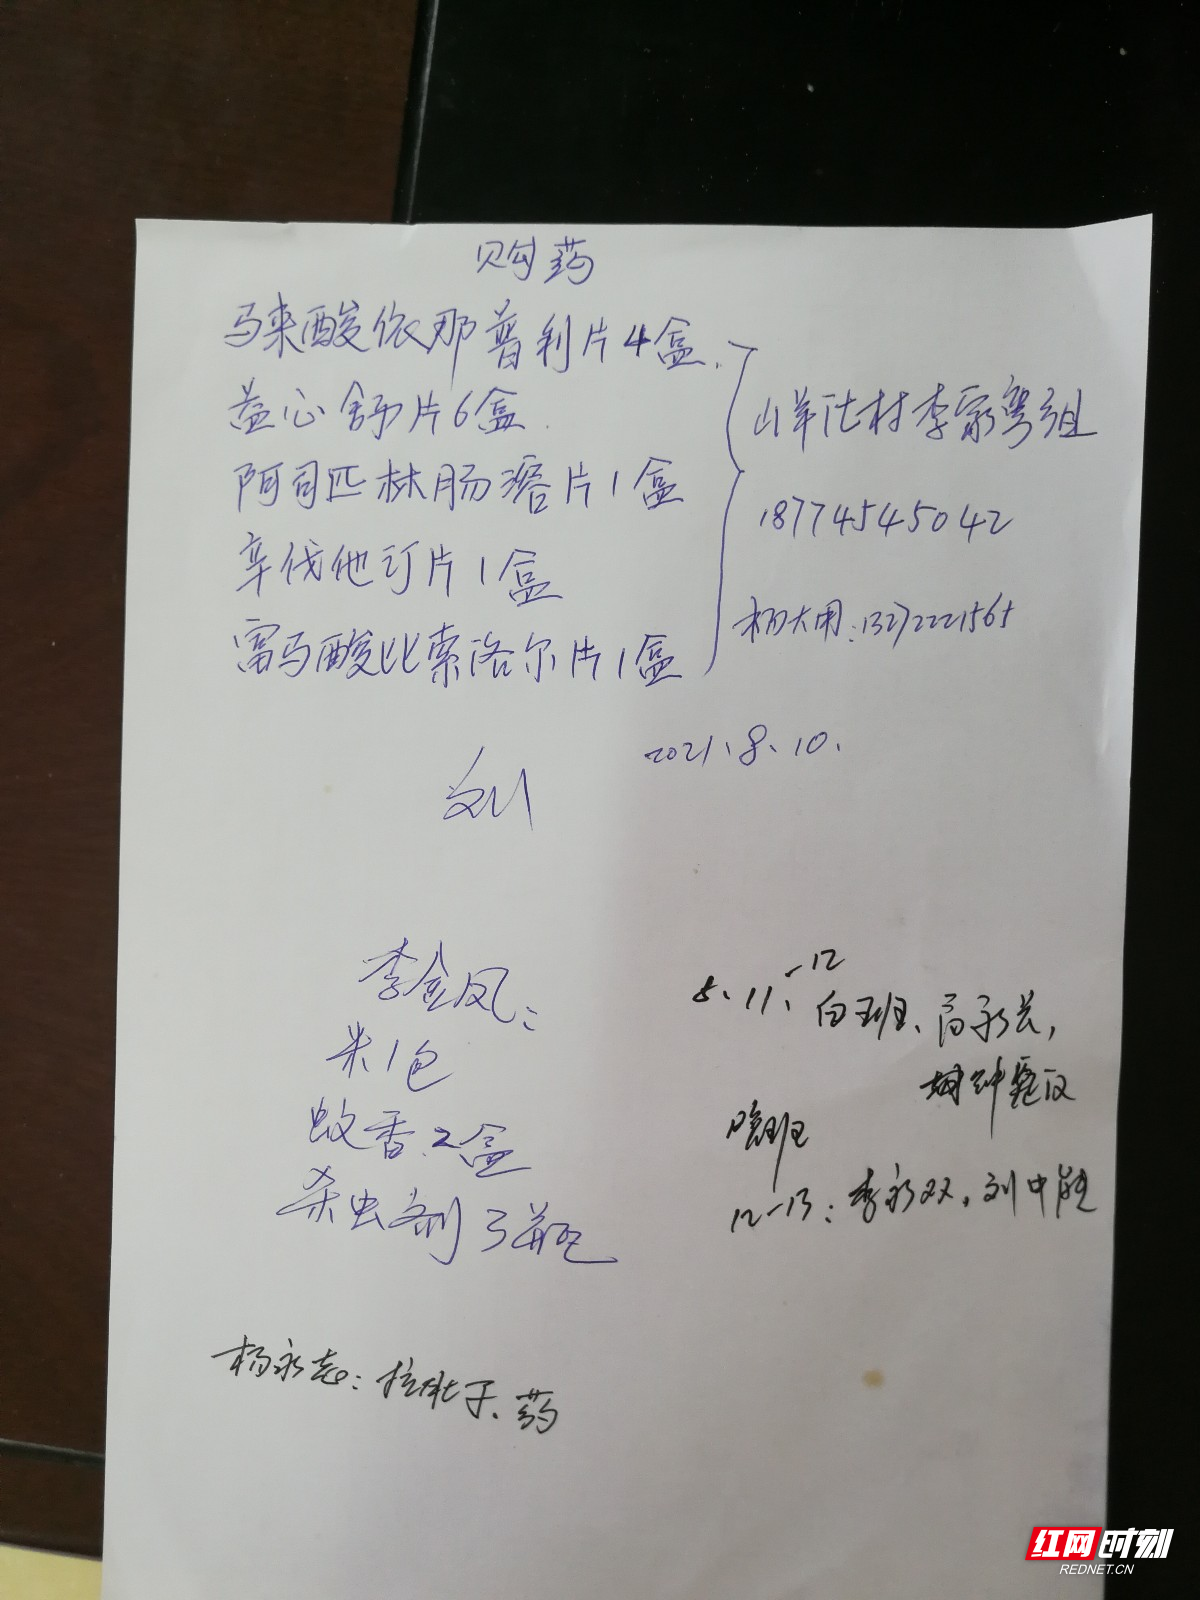 购药
马来酸依那普利片4盒.
益心舒片6盒.
阿司匹林肠溶片1盒
辛伐他汀片1盒
富马酸比索洛尔片1盒
山羊村李家湾组
18774545042
杨大用:13272221565
2021.8.10.
刘
李金凤:
米1包
蚊香.2盒
杀虫剂3瓶
8.11.-12
白班、高永
晚班
12-13:李永双,刘中
杨永志:拉肚子、药
红网时刻
REDNET.CN